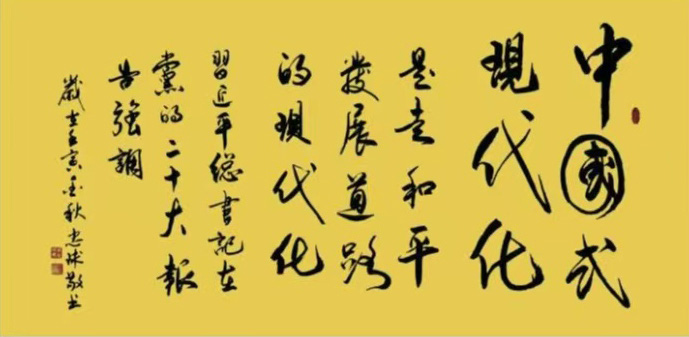 中國式
現代化
是走和平
發展道路
的現代化
習近平総書記在
黨的二十大報
告強調
歲在壬寅金秋忠珠敬书